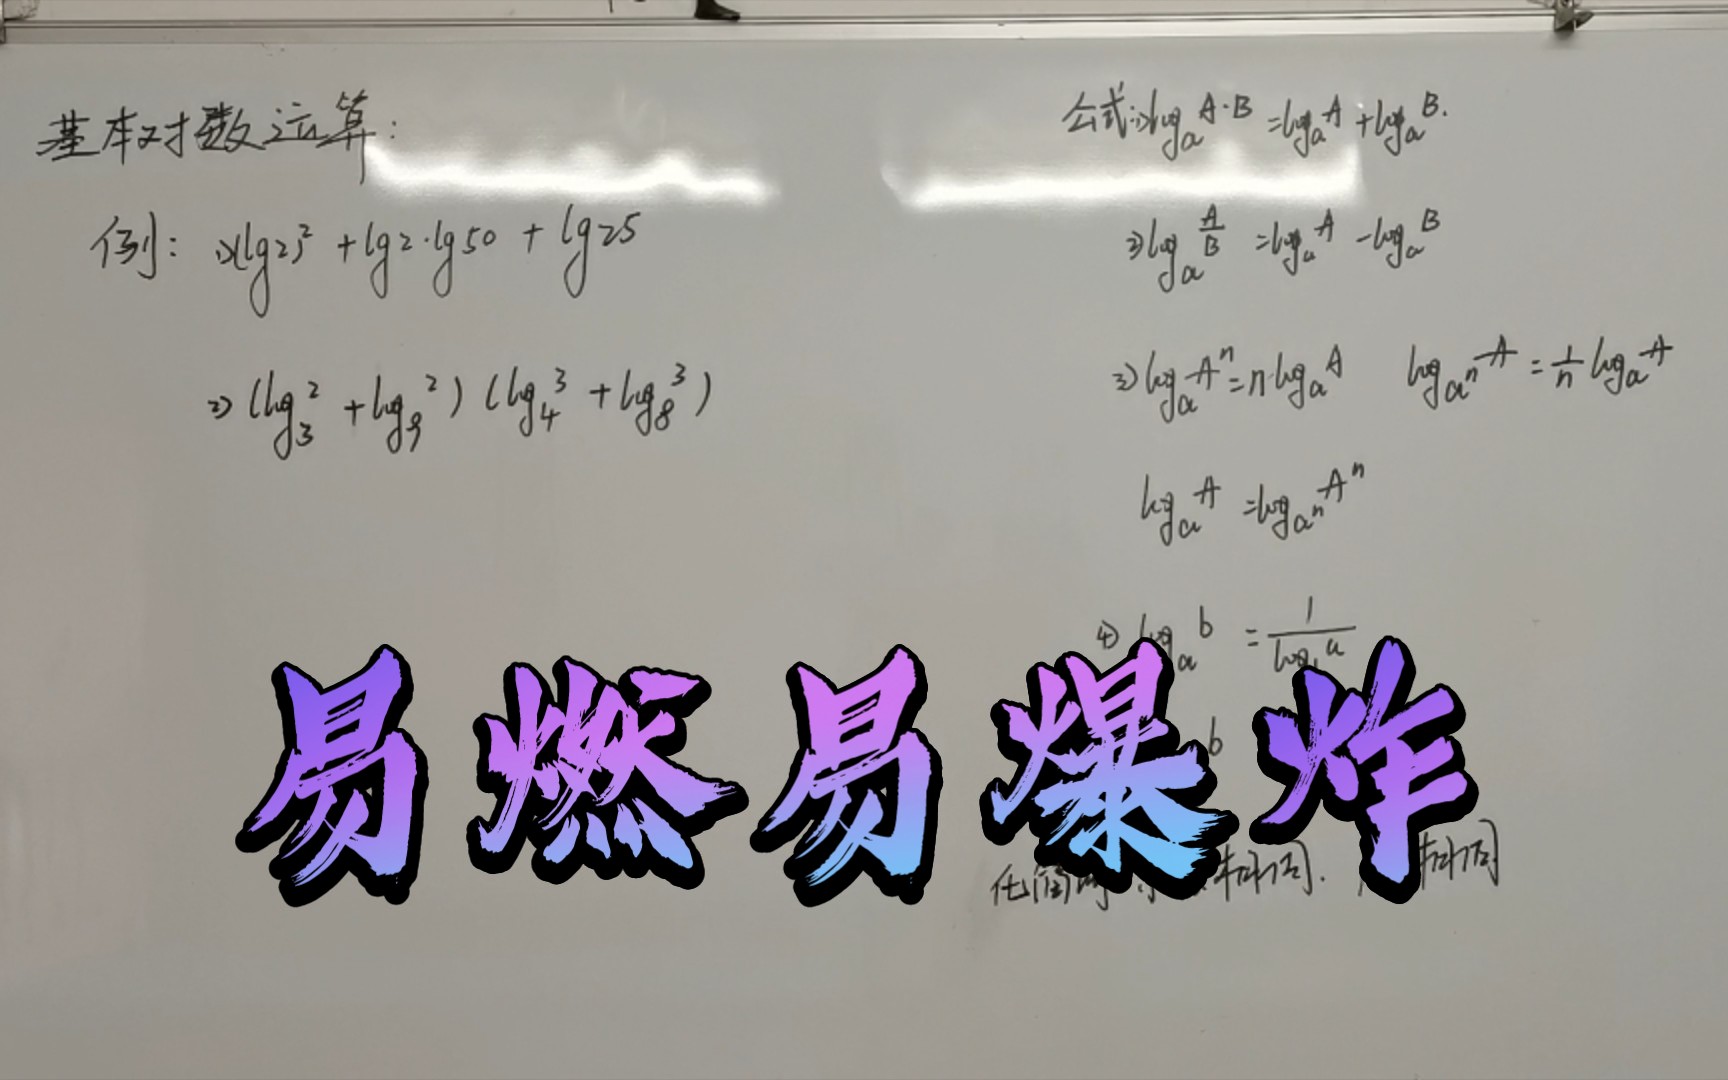 基本对数运算:
例: 1) (lg2)² + lg2·lg50 + lg25
2) (log₃2 + log₉2) (log₄3 + log₈3)
公式: 1) logₐA·B = logₐA + logₐB.
2) logₐA/B = logₐA - logₐB
3) logₐAⁿ = n·logₐA logₐₙA = 1/n logₐA
logₐA = logₐₙAⁿ
4) logₐb = 1/log a
b
化简 相同. 相同
易燃易爆炸